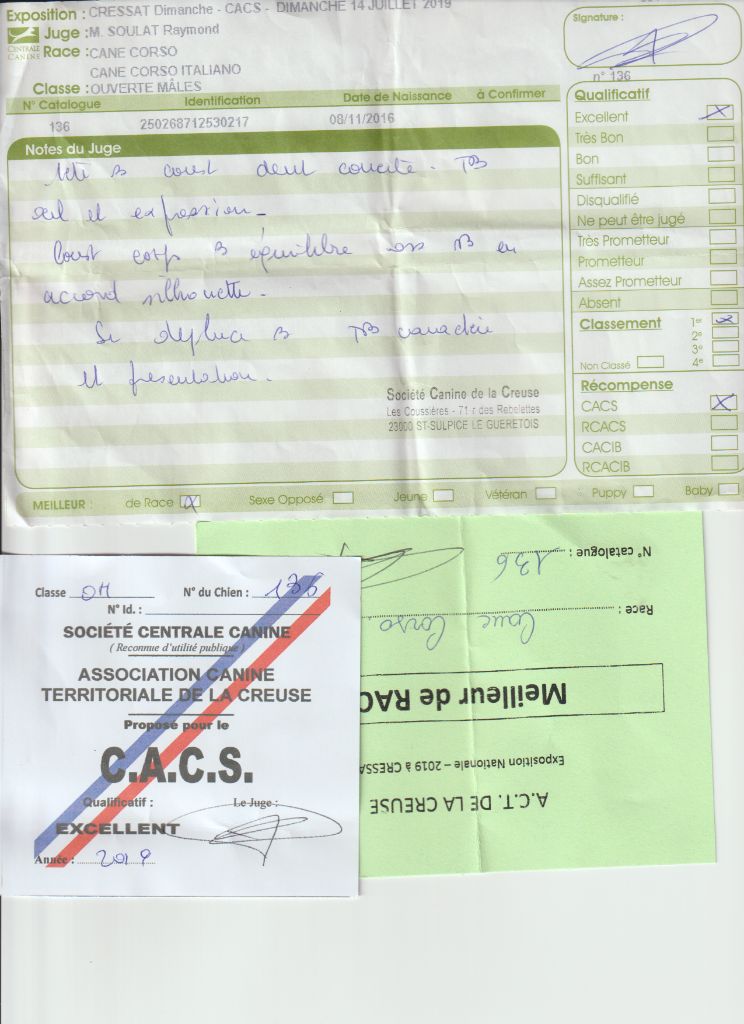 Exposition : CRESSAT Dimanche - CACS - DIMANCHE 14 JUILLET 2019
Juge : M. SOULAT Raymond
CENTRALE CANINE
Race : CANE CORSO
CANE CORSO ITALIANO
Classe : OUVERTE MÂLES
Signature :
n° 136
N° Catalogue Identification Date de Naissance à Confirmer
136 250268712530217 08/11/2016
Notes du Juge
Tête B dent TB
œil et expression.
corps B équilibre os TB en
accord silhouette.
Se déplace B TB caractère
et présentation.
Société Canine de la Creuse
Les Coussières - 71 r des Rebelettes
23000 ST-SULPICE LE GUERETOIS
Qualificatif
Excellent X
Très Bon
Bon
Suffisant
Disqualifié
Ne peut être jugé
Très Prometteur
Prometteur
Assez Prometteur
Absent
Classement 1er X
2e
3e
Non Classé 4e
Récompense
CACS X
RCACS
CACIB
RCACIB
MEILLEUR : de Race X Sexe Opposé Jeune Vétéran Puppy Baby
Classe OM N° du Chien : 136
N° Id. :
SOCIÉTÉ CENTRALE CANINE
( Reconnue d'utilité publique )
ASSOCIATION CANINE
TERRITORIALE DE LA CREUSE
Proposé pour le
C.A.C.S.
Qualificatif : Le Juge :
EXCELLENT
Année : 2019
A.C.T. DE LA CREUSE
Exposition Nationale – 2019 à CRESSA
Meilleur de RAC
Race : Cane Corso
N° catalogue : 136